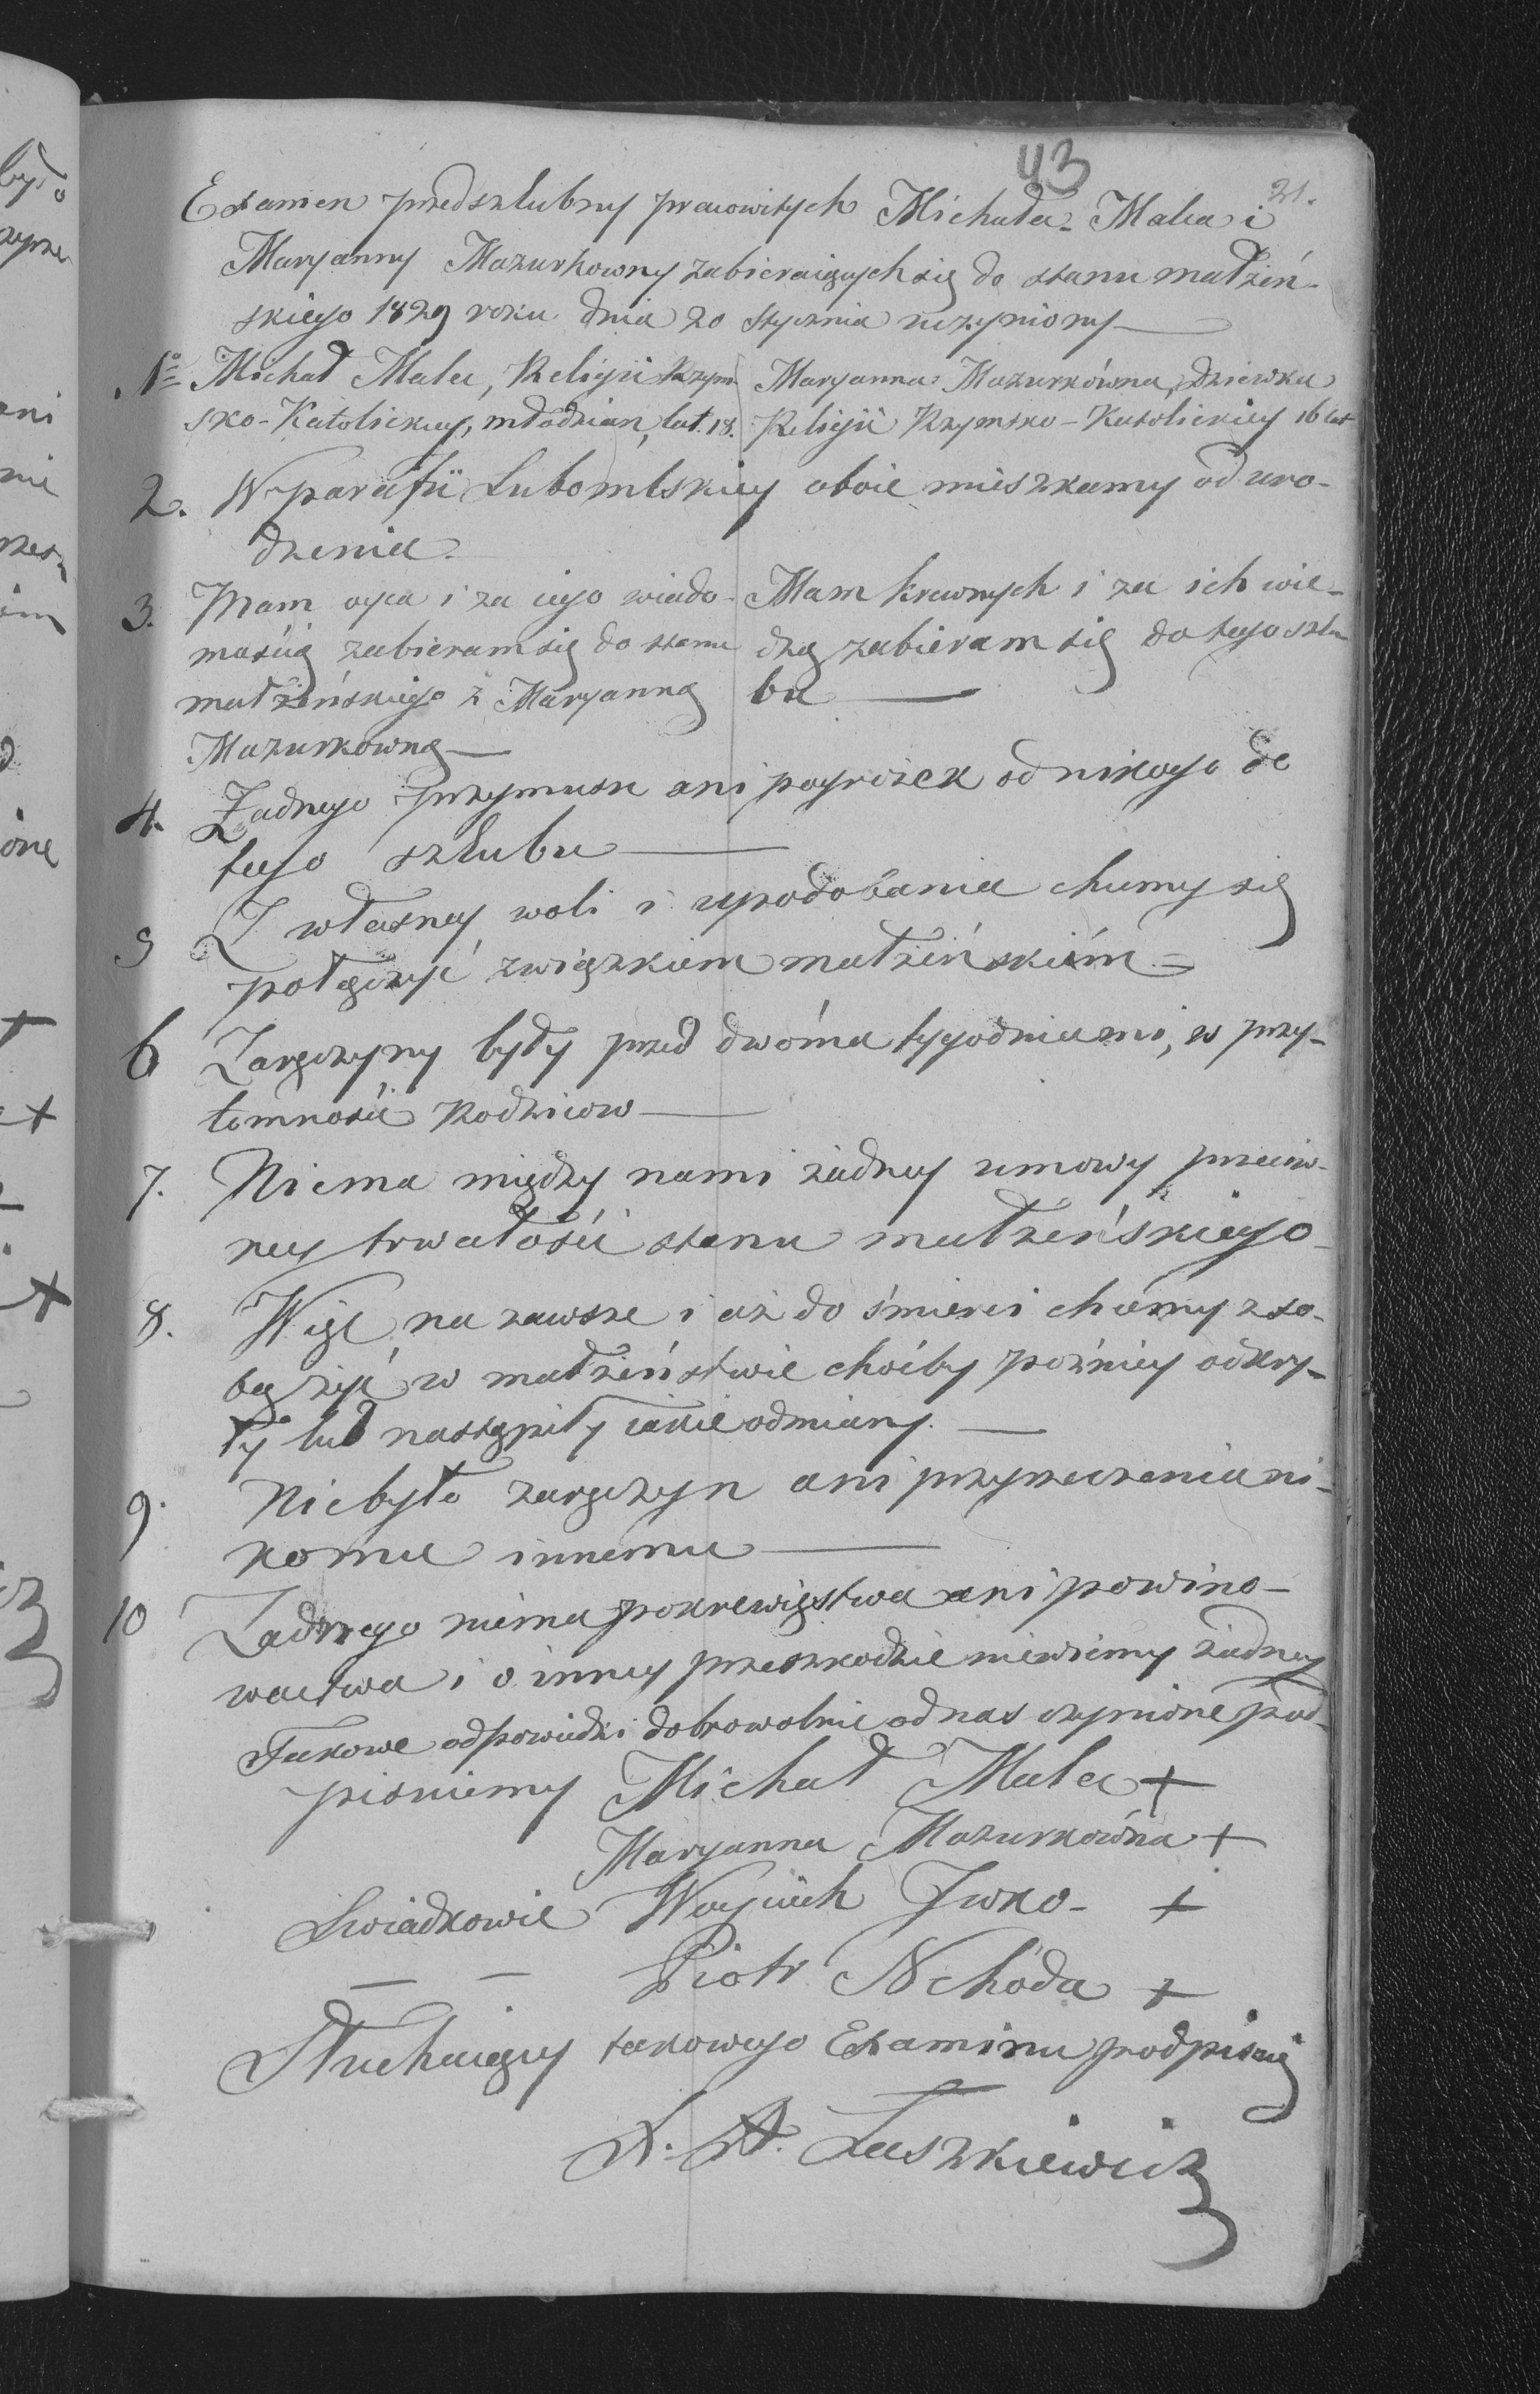 43
21.
Examen przedszlubny pracowitych Michała Malca i
Maryanny Mazurkowny zabieraiących się do stanu małżeń-
skiego 1829 roku dnia 20 Stycznia uczyniony
1º Michał Malec, Religii Rzym- Maryanna Mazurkówna, dziewka
sko-Katolickiey, młodzian, lat 18. Religii Rzymsko-Katolickiey 16 lat
2. W parafii Lubomlskiey oboie mieszkamy od uro-
dzenia
3. Mam oyca i za iego wiado- Mam krewnych i za ich wie-
mością zabieram się do stanu dzą zabieram się do tego szlu
małżeńskiego z Maryanną bu
Mazurkowną
4. Żadnego przymusu ani pogrożek od nikogo do
tego szłubu
5 Z własney woli i upodobania chcemy się
połączyć związkiem małżeńskiém
6 Zaręczyny były przed dwóma tygodniami, w przy-
tomności Rodzicow
7. Niema między nami żadney umowy przeciw-
ney trwałości stanu małżeńskiego
8. Więc na zawsze i aż do śmierci chcemy z so-
bą żyć w małżeństwie choćby poźniey odkry-
ły lub nastąpiły iakie odmiany.
9. Niebyło zaręczyn ani przyrzeczenia ni-
komu innemu
10 Żadnego niema pokrewięstwa ani powino-
wactwa i o inney przeszkodzie niewiemy żadney
Takowe odpowiedzi dobrowolnie od nas czynione pod-
pisuiemy Michał Malec +
Maryanna Mazurkówna +
Swiadkowie Woyciech Iwko - +
— — Piotr Nchóda +
Słuchaiący takowego Examinu podpisuię
X. A. Laszkiewicz
było
ani
nie
one
+
+
+